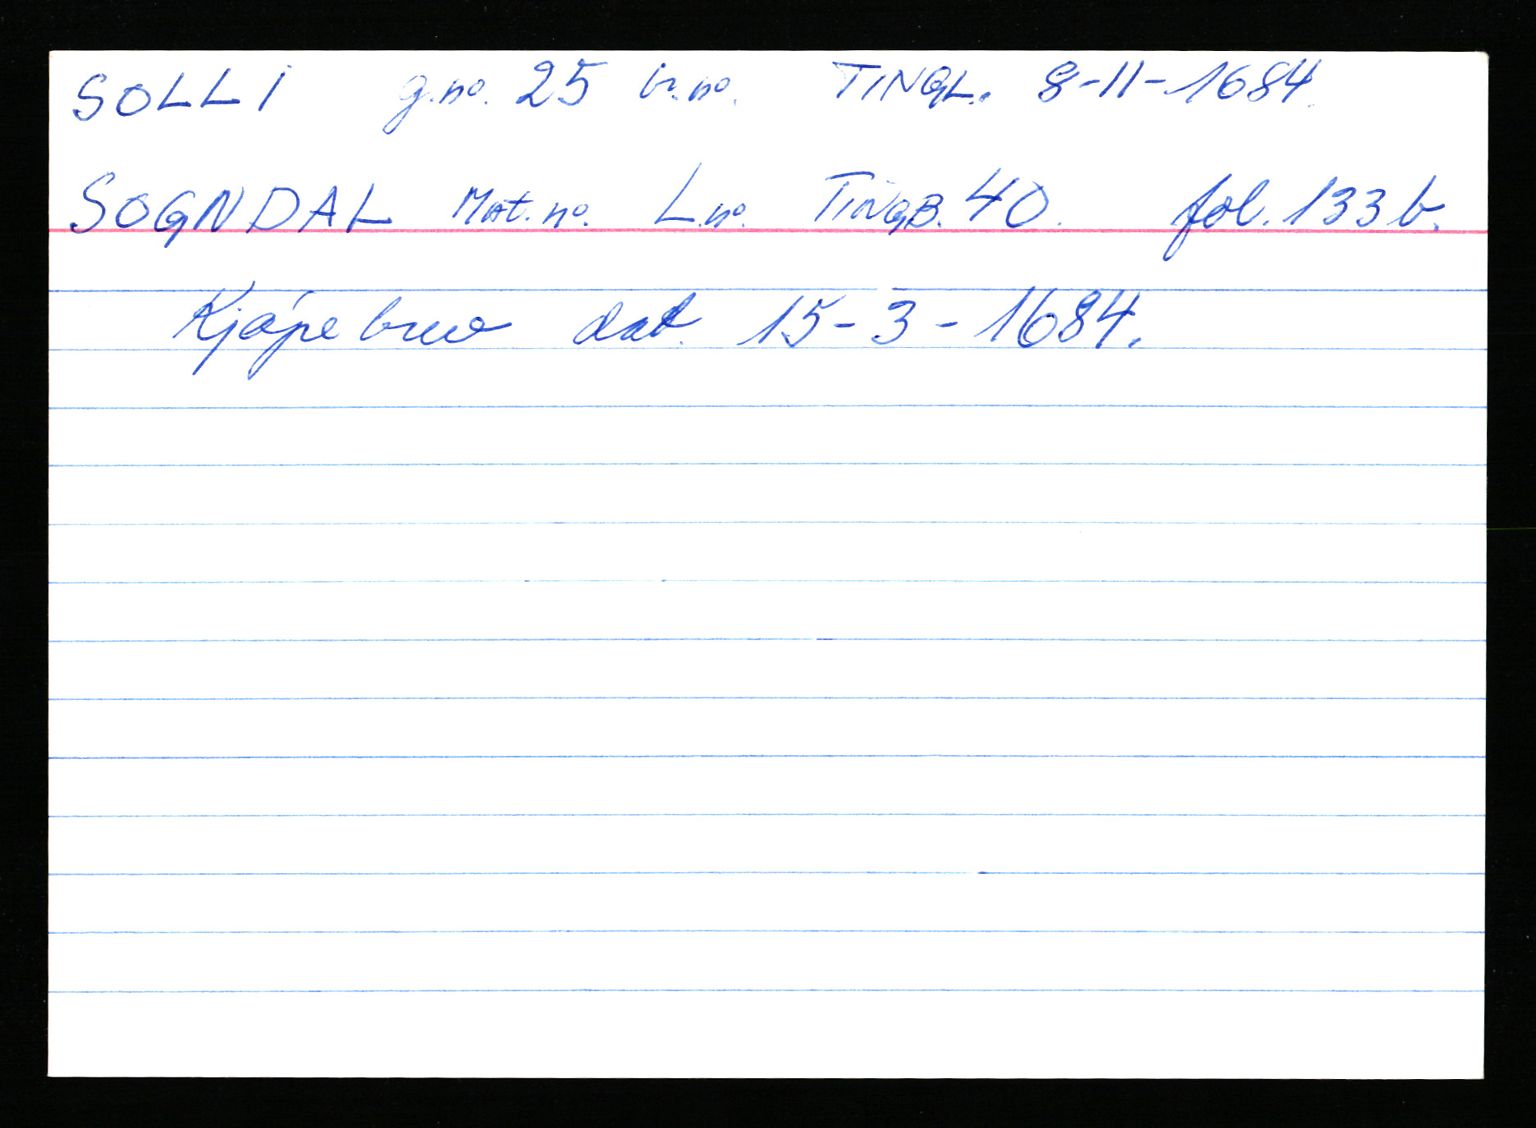 SOLLI g.no. 25 br.no. TINGL. 8-11-1684.
SOGNDAL Mat.no. L.no. TINGB. 40. fol. 133 b.
Kjøpe brev dat. 15-3-1684.